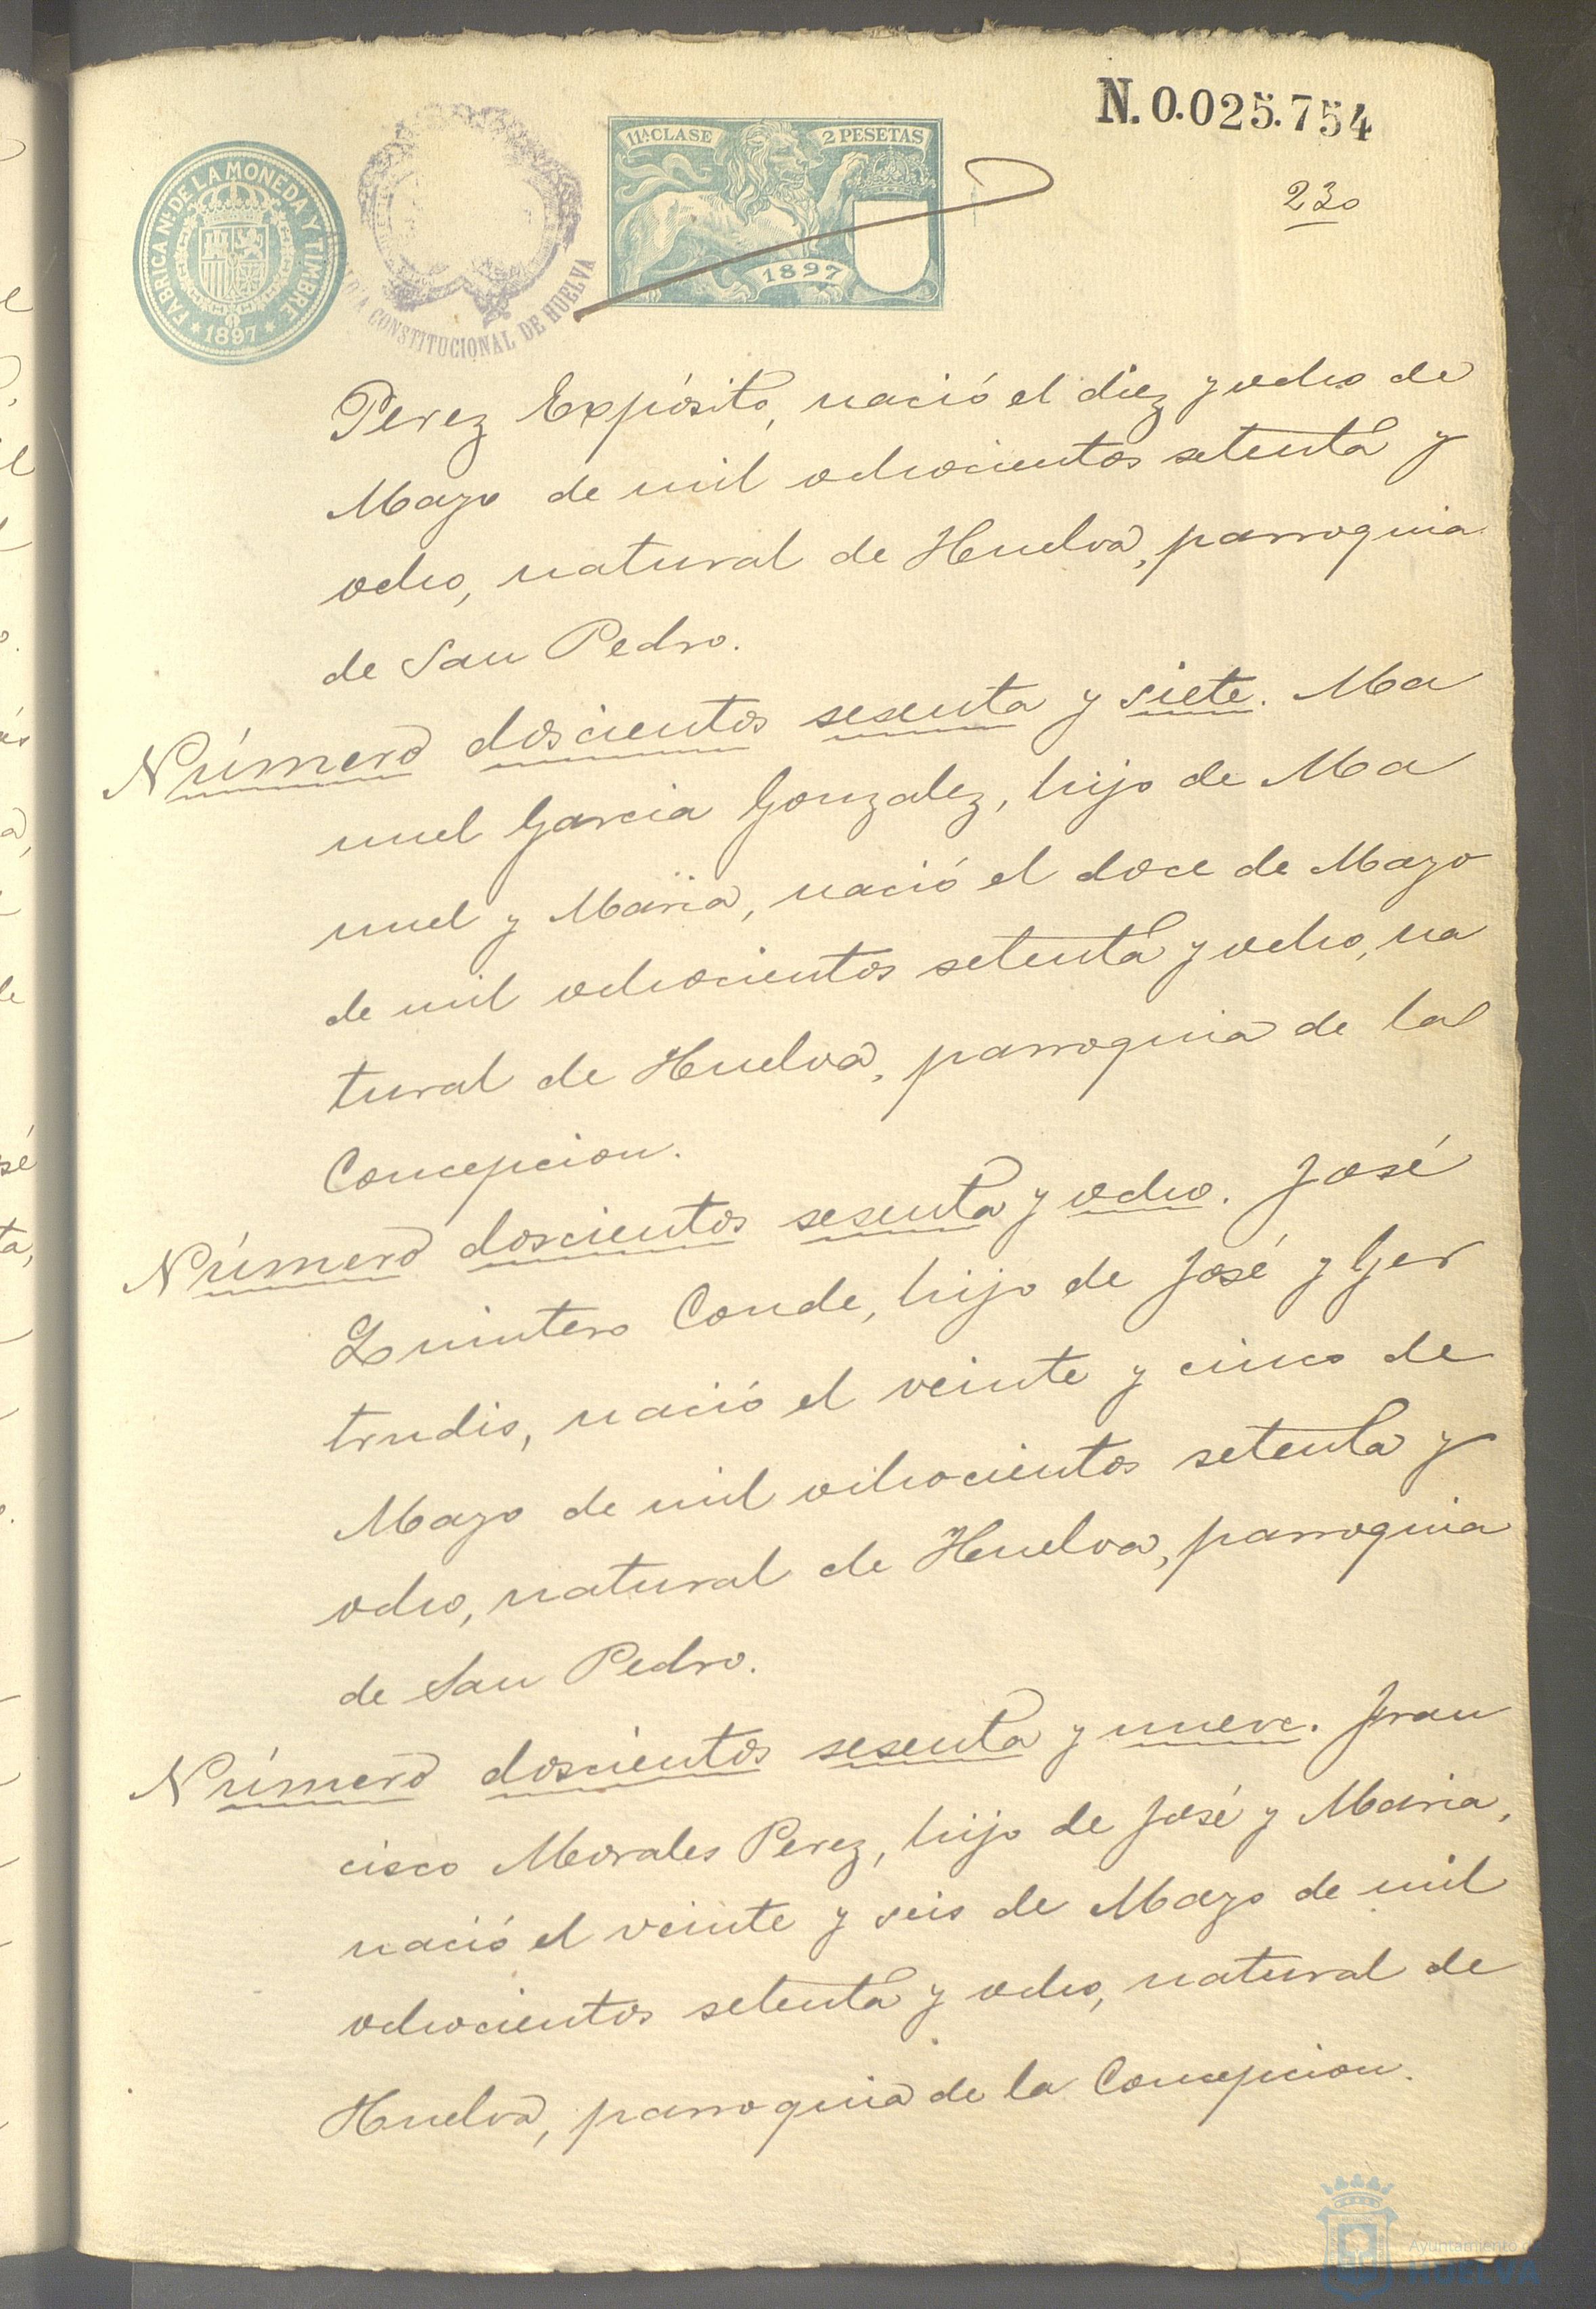 N. 0.025.754
230
11ª CLASE 2 PESETAS
1897
FABRICA Nl. DE LA MONEDA Y TIMBRE
* 1897 *
CONSTITUCIONAL DE HUELVA
Perez Expósito, nació el diez y ocho de
Mayo de mil ochocientos setenta y
ocho, natural de Huelva, parroquia
de San Pedro.
Número doscientos sesenta y siete. Ma
nuel Garcia Gonzalez, hijo de Ma
nuel y Maria, nació el doce de Mayo
de mil ochocientos setenta y ocho, na
tural de Huelva, parroquia de la
Concepcion.
Número doscientos sesenta y ocho. José
Quintero Conde, hijo de José y Ger
trudis, nació el veinte y cinco de
Mayo de mil ochocientos setenta y
ocho, natural de Huelva, parroquia
de San Pedro.
Número doscientos sesenta y nueve. Fran
cisco Morales Perez, hijo de José y Maria,
nació el veinte y seis de Mayo de mil
ochocientos setenta y ocho, natural de
Huelva, parroquia de la Concepcion.
Ayuntamiento
HUELVA